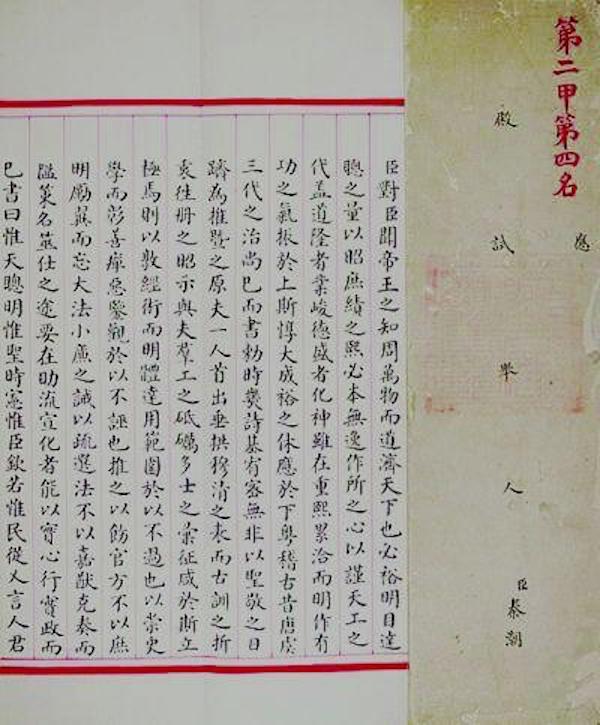 第二甲第四名
應
殿試舉人臣秦潮
臣對臣聞帝王之知周萬物而道濟天下也必裕明目達
聰之量以昭庶績之熙必本無逸作所之心以謹天工之
代蓋道隆者業峻德盛者化神雖在重熙累洽而明作有
功之氣振於上斯惇大成裕之休應於下粵稽古昔唐虞
三代之治尚已而書勑時幾詩基宥密無非以聖敬之日
躋為推暨之原夫一人首出垂拱穆清之表而古訓之折
衷往冊之昭示與夫羣工之砥礪多士之彙征咸於斯立
極焉則以敦經術而明體達用範圍於以不過也以崇史
學而彰善癉惡鑒觀於以不誣也推之以飭官方不以庶
明勵翼而忘大法小廉之誡以疏選法不以嘉猷克奏而
濫策名筮仕之途要在助流宣化者能以實心行實政而
已書曰惟天聰明惟聖時憲惟臣欽若惟民從乂言人君